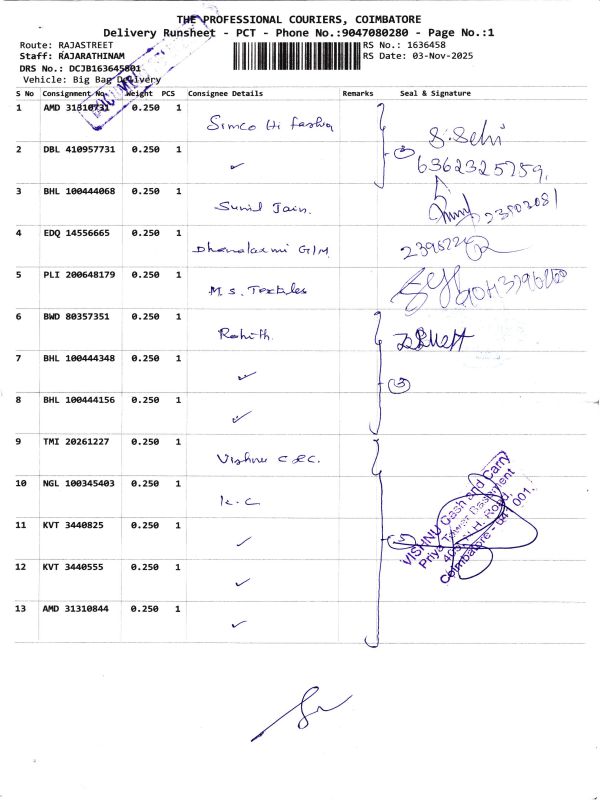 THE PROFESSIONAL COURIERS, COIMBATORE
Delivery Runsheet - PCT - Phone No.:9047080280 - Page No.:1
Route: RAJASTREET
Staff: RAJARATHINAM
DRS No.: DCJB163645801
Vehicle: Big Bag Delivery
RS No.: 1636458
RS Date: 03-Nov-2025
S No Consignment No. Weight PCS Consignee Details Remarks Seal & Signature
1 AMD 31310731 0.250 1 Simco Hi fashion S.Selvi
2 DBL 410957731 0.250 1 ✓ 2 6362325759.
3 BHL 100444068 0.250 1 Sunil Jain.
4 EDQ 14556665 0.250 1 Dhanalaxmi G/M
5 PLI 200648179 0.250 1 M.s. Textiles
6 BWD 80357351 0.250 1 Rohith
7 BHL 100444348 0.250 1 ✓ 3
8 BHL 100444156 0.250 1 ✓
9 TMI 20261227 0.250 1 Vishnu C&C.
10 NGL 100345403 0.250 1 K.C
11 KVT 3440825 0.250 1 ✓ 5
12 KVT 3440555 0.250 1 ✓
13 AMD 31310844 0.250 1 ✓
VISHNU Cash and Carry
Priya Tower Basement
H. Road,
Coimbatore - 641 001.